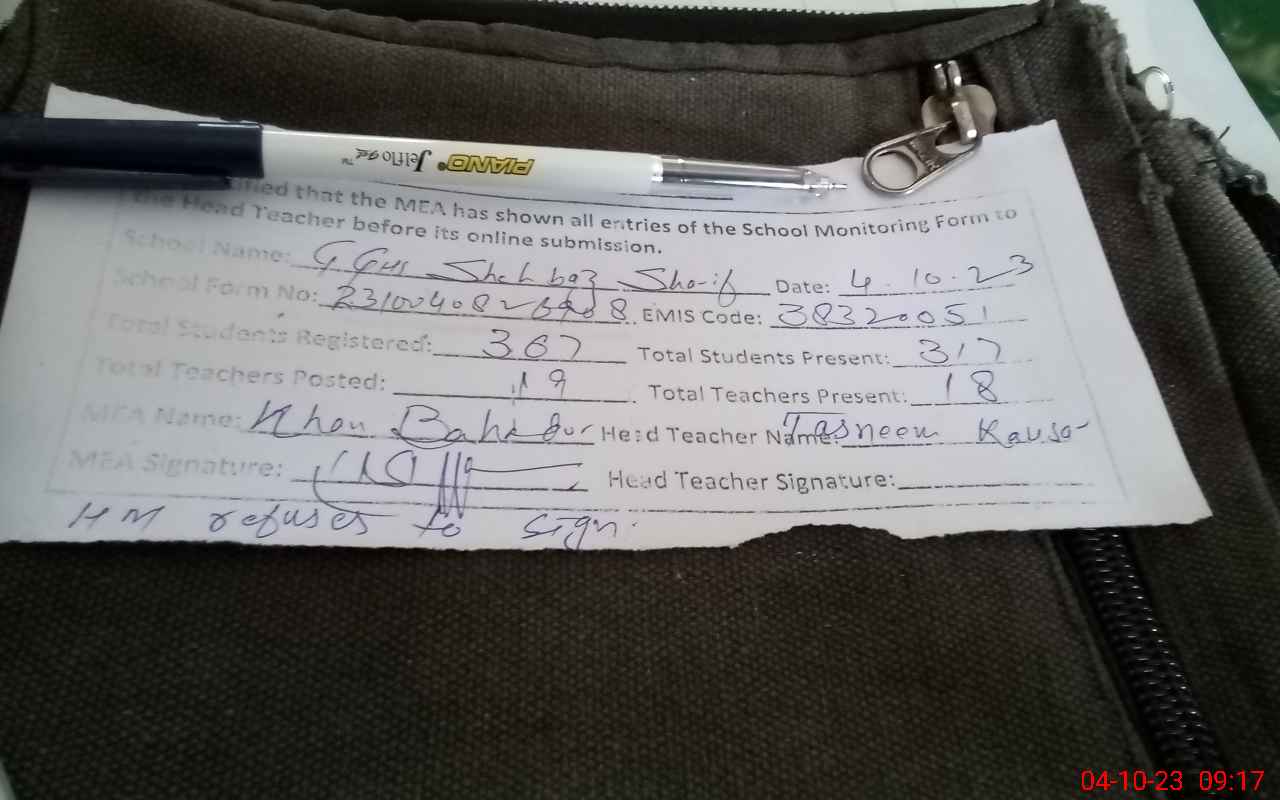 PIANO® Jelflo gel™
ified that the MEA has shown all entries of the School Monitoring Form to
the Head Teacher before its online submission.
School Name: GGHS Shahbaz Sharif Date: 4.10.23
School Form No: EMIS Code: 38320051
Total Students Registered: 367 Total Students Present: 317
Total Teachers Posted: 19 Total Teachers Present: 18
MEA Name: Khan Bahadur Head Teacher Name: Tasneem Kausar
MEA Signature: Head Teacher Signature:
HM refuses to sign.
04-10-23 09:17